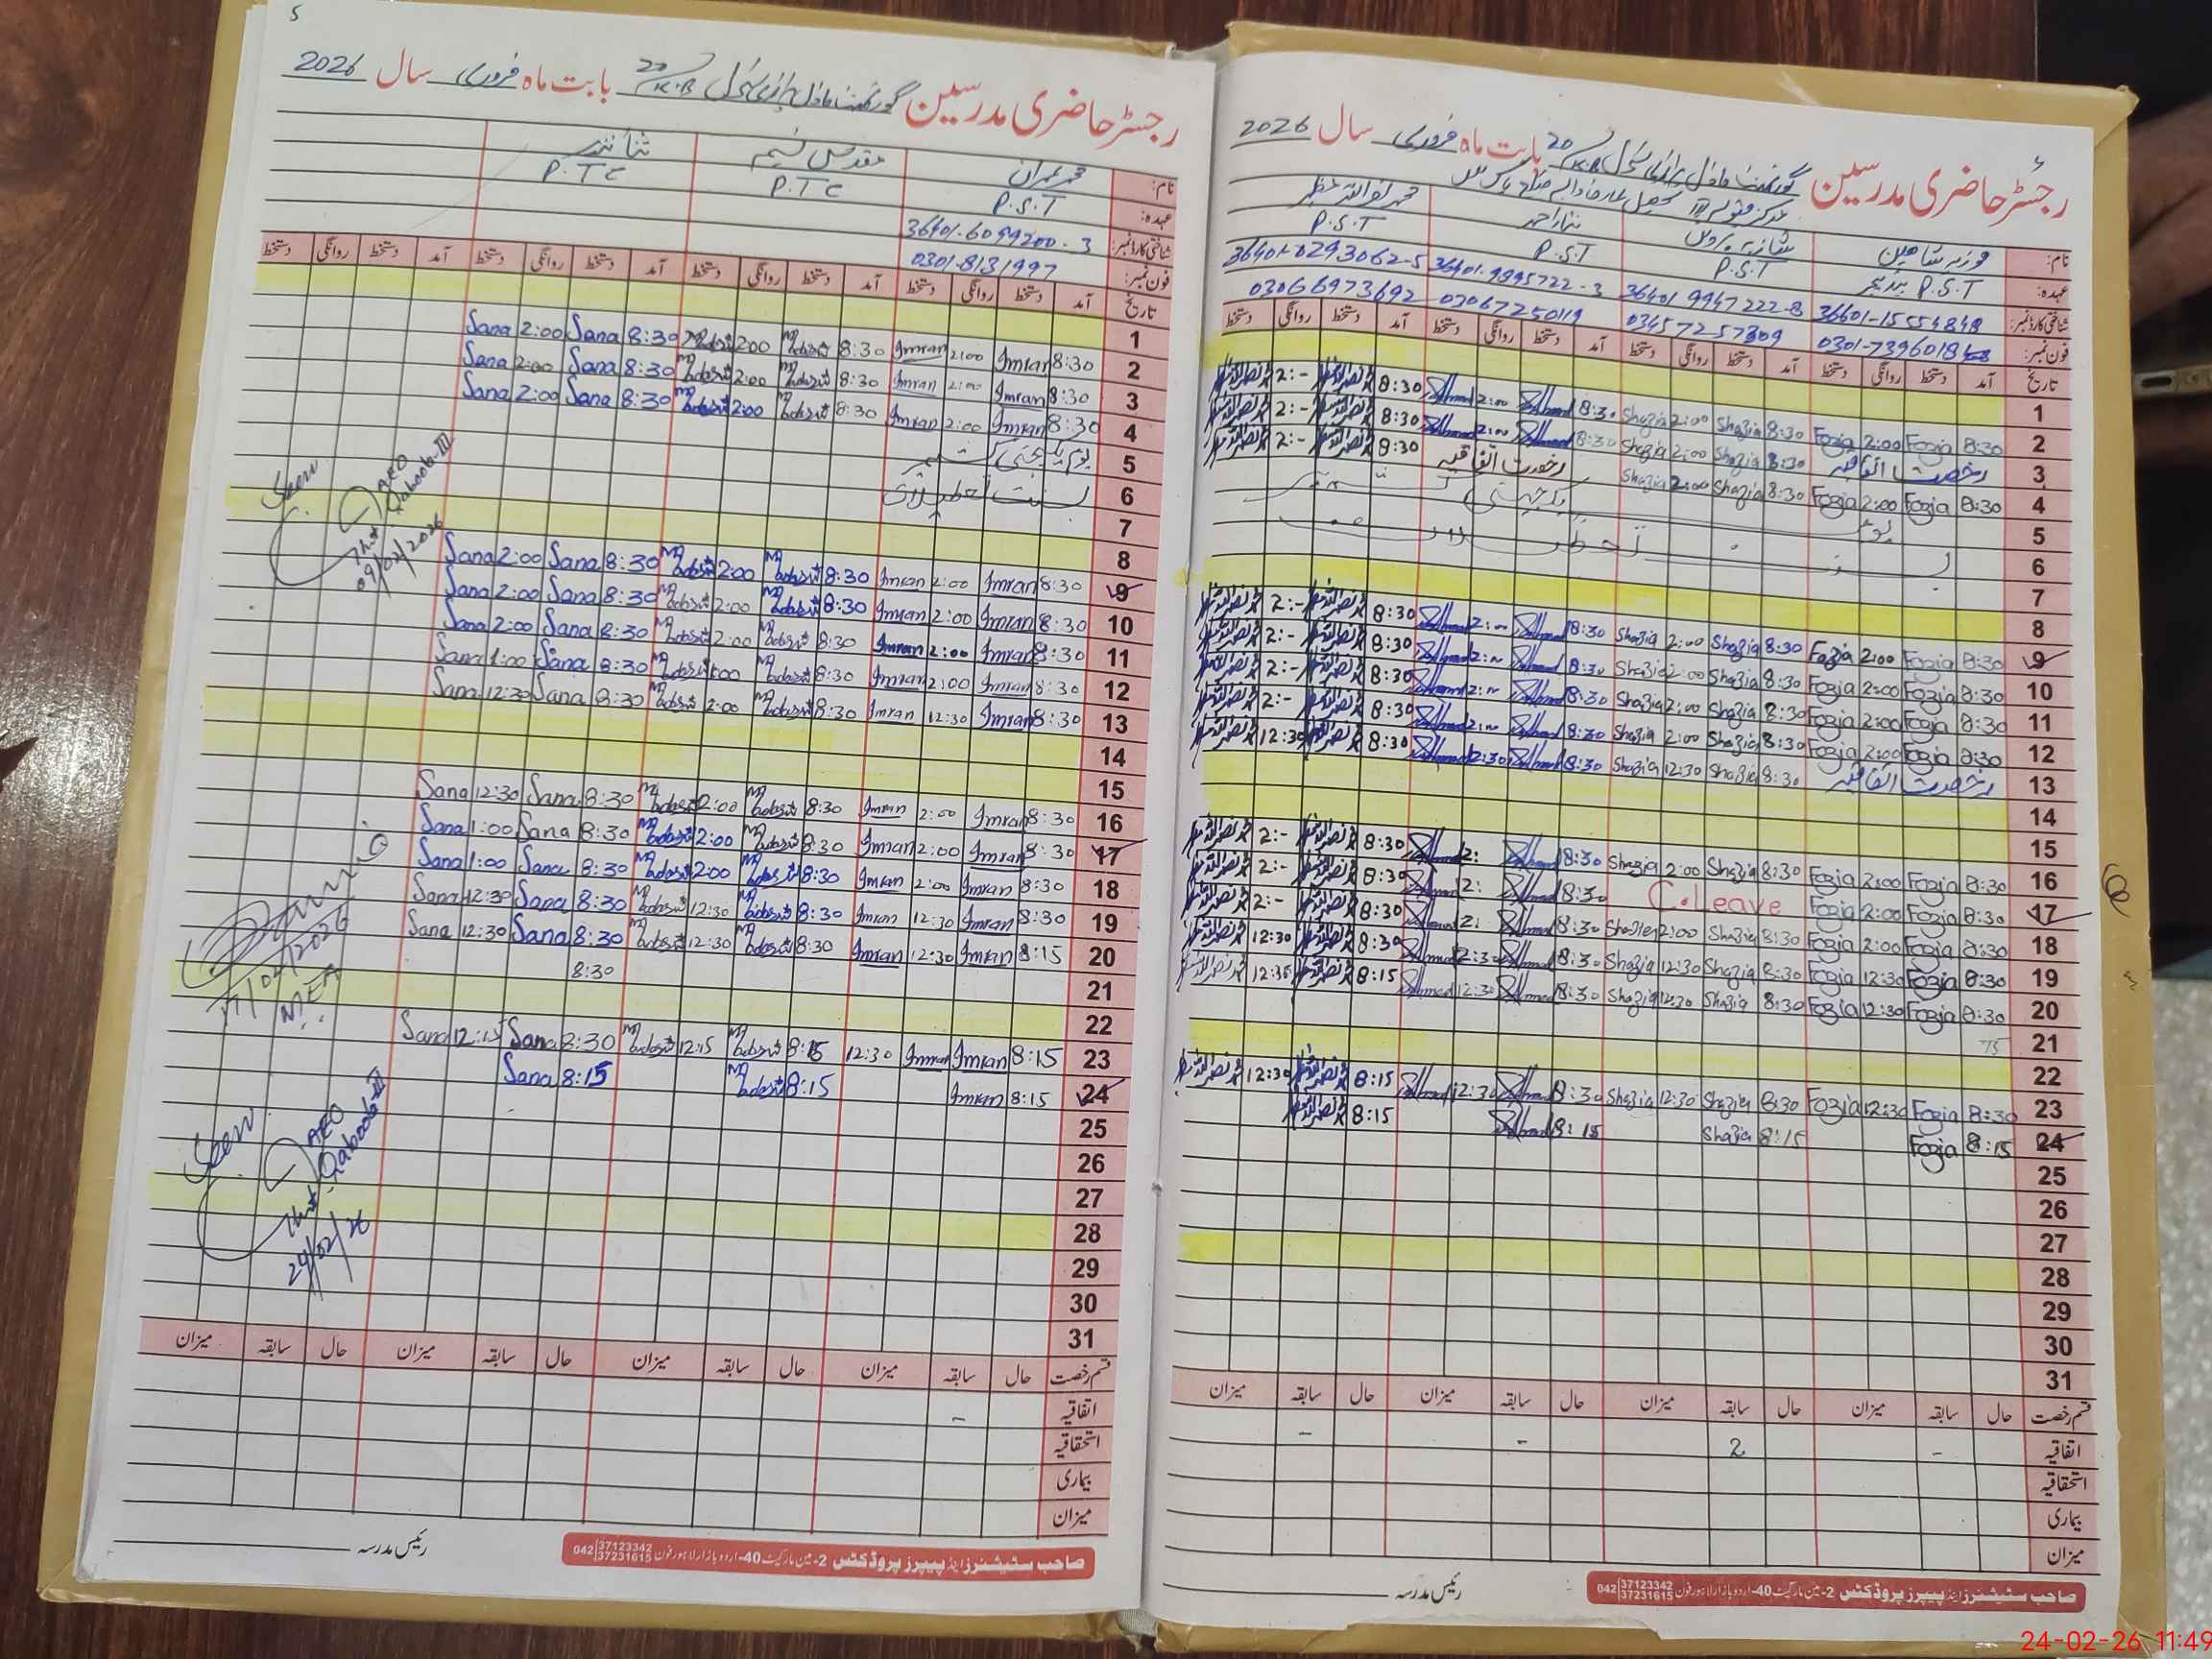 رجسٹر حاضری مدرسین گورنمنٹ ماڈل پرائمری سکول 20/K.B بابت ماہ فروری سال 2026
مرکز قبولہ III تحصیل عارفوالہ ضلع پاکپتن
نام: فوزیہ شاہین شازیہ نثار احمد محمد نصر اللہ
عہدہ: P.S.T P.S.T P.S.T P.S.T
شناختی کارڈ نمبر: 36601-1555484-8 36401 9947222-8 36401-9895722-3 36401-0293062-5
فون نمبر: 0301-7396018 03457257809 03067250119 03066973692
تاریخ آمد دستخط روانگی دستخط آمد دستخط روانگی دستخط آمد دستخط روانگی دستخط آمد دستخط روانگی دستخط
1
2 8:30 Fozia 2:00 Fozia 8:30 Shazia 2:00 Shazia 8:30 2:00 8:30 2:-
3 رخصت اتفاقیہ 8:30 Shazia 2:00 Shazia 8:30 2:00 8:30 2:-
4 8:30 Fozia 2:00 Fozia 8:30 Shazia 2:00 Shazia رخصت اتفاقیہ 8:30 2:-
5 یوم یکجہتی کشمیر
6 بسنت تعطیلات
7
8
9 8:30 Fozia 2:00 Fozia 8:30 Shazia 2:00 Shazia 8:30 2:00 8:30 2:-
10 8:30 Fozia 2:00 Fozia 8:30 Shazia 2:00 Shazia 8:30 8:30 2:-
11 8:30 Fozia 2:00 Fozia 8:30 Shazia 2:00 Shazia 8:30 8:30 2:-
12 8:30 Fozia 2:00 Fozia 8:30 Shazia 2:00 Shazia 8:30 8:30 2:-
13 رخصت اتفاقیہ 8:30 Shazia 12:30 Shazia 8:30 12:30 8:30 12:30
14
15
16 8:30 Fozia 2:00 Fozia 8:30 Shazia 2:00 Shazia 8:30 2: 8:30 2:-
17 8:30 Fozia 2:00 Fozia C.Leave 8:30 2: 8:30 2:-
18 8:30 Fozia 2:00 Fozia 8:30 Shazia 2:00 Shazia 8:30 2: 8:30 2:-
19 8:30 Fozia 12:30 Fozia 8:30 Shazia 12:30 Shazia 8:30 12:30 8:30 12:30
20 8:30 Fozia 12:30 Fozia 8:30 Shazia 12:30 Shazia 8:30 12:30 8:15 12:30
21
22
23 8:30 Fozia 12:30 Fozia 8:30 Shazia 12:30 Shazia 8:30 12:30 8:15 12:30
24 8:15 Fozia 8:15 Shazia 8:15 8:15
25
26
27
28
29
30
31
قسم رخصت حال سابقہ میزان حال سابقہ میزان حال سابقہ میزان حال سابقہ میزان
اتفاقیہ - 2 - -
استحقاقیہ
بیماری
میزان
رئیس مدرسہ
صاحب سٹیشنرز اینڈ پیپرز پروڈکٹس 2-مین مارکیٹ 40-اردو بازار لاہور فون 042 37123342 37231615
5
رجسٹر حاضری مدرسین گورنمنٹ ماڈل پرائمری سکول 20/K.B بابت ماہ فروری سال 2026
نام: محمد عمران مقدس نسیم ثنا نذیر
عہدہ: P.S.T P.T.C P.T.C
شناختی کارڈ نمبر: 36401-6099200-3
فون نمبر: 0301-8131997
تاریخ آمد دستخط روانگی دستخط آمد دستخط روانگی دستخط آمد دستخط روانگی دستخط آمد دستخط روانگی دستخط
1
2 8:30 Imran 2:00 Imran 8:30 2:00 8:30 Sana 2:00 Sana
3 8:30 Imran 2:00 Imran 8:30 2:00 8:30 Sana 2:00 Sana
4 8:30 Imran 2:00 Imran 8:30 2:00 8:30 Sana 2:00 Sana
5 یوم یکجہتی کشمیر
6 بسنت تعطیلات
7
8
9 8:30 Imran 2:00 Imran 8:30 2:00 8:30 Sana 2:00 Sana
10 8:30 Imran 2:00 Imran 8:30 2:00 8:30 Sana 2:00 Sana
11 8:30 Imran 2:00 Imran 8:30 2:00 8:30 Sana 2:00 Sana
12 8:30 Imran 2:00 Imran 8:30 8:30 Sana 1:00 Sana
13 8:30 Imran 12:30 Imran 8:30 2:00 8:30 Sana 12:30 Sana
14
15
16 8:30 Imran 2:00 Imran 8:30 2:00 8:30 Sana 12:30 Sana
17 8:30 Imran 2:00 Imran 8:30 2:00 8:30 Sana 1:00 Sana
18 8:30 Imran 2:00 Imran 8:30 2:00 8:30 Sana 1:00 Sana
19 8:30 Imran 12:30 Imran 8:30 12:30 8:30 Sana 12:30 Sana
20 8:15 Imran 12:30 Imran 8:30 12:30 8:30 Sana 12:30 Sana
21 8:30
22
23 8:15 Imran Imran 12:30 8:15 12:15 8:30 Sana 12:15 Sana
24 8:15 Imran 8:15 8:15 Sana
25
26
27
28
29
30
31
Seen
AEO
Qaboola-III
09/02/2026
17/02/2026
MEA
Seen
AEO
Qaboola-III
24/02/26
قسم رخصت حال سابقہ میزان حال سابقہ میزان حال سابقہ میزان حال سابقہ میزان
اتفاقیہ -
استحقاقیہ
بیماری
میزان
رئیس مدرسہ
صاحب سٹیشنرز اینڈ پیپرز پروڈکٹس 2-مین مارکیٹ 40-اردو بازار لاہور فون 042 37123342 37231615
24-02-26 11:49